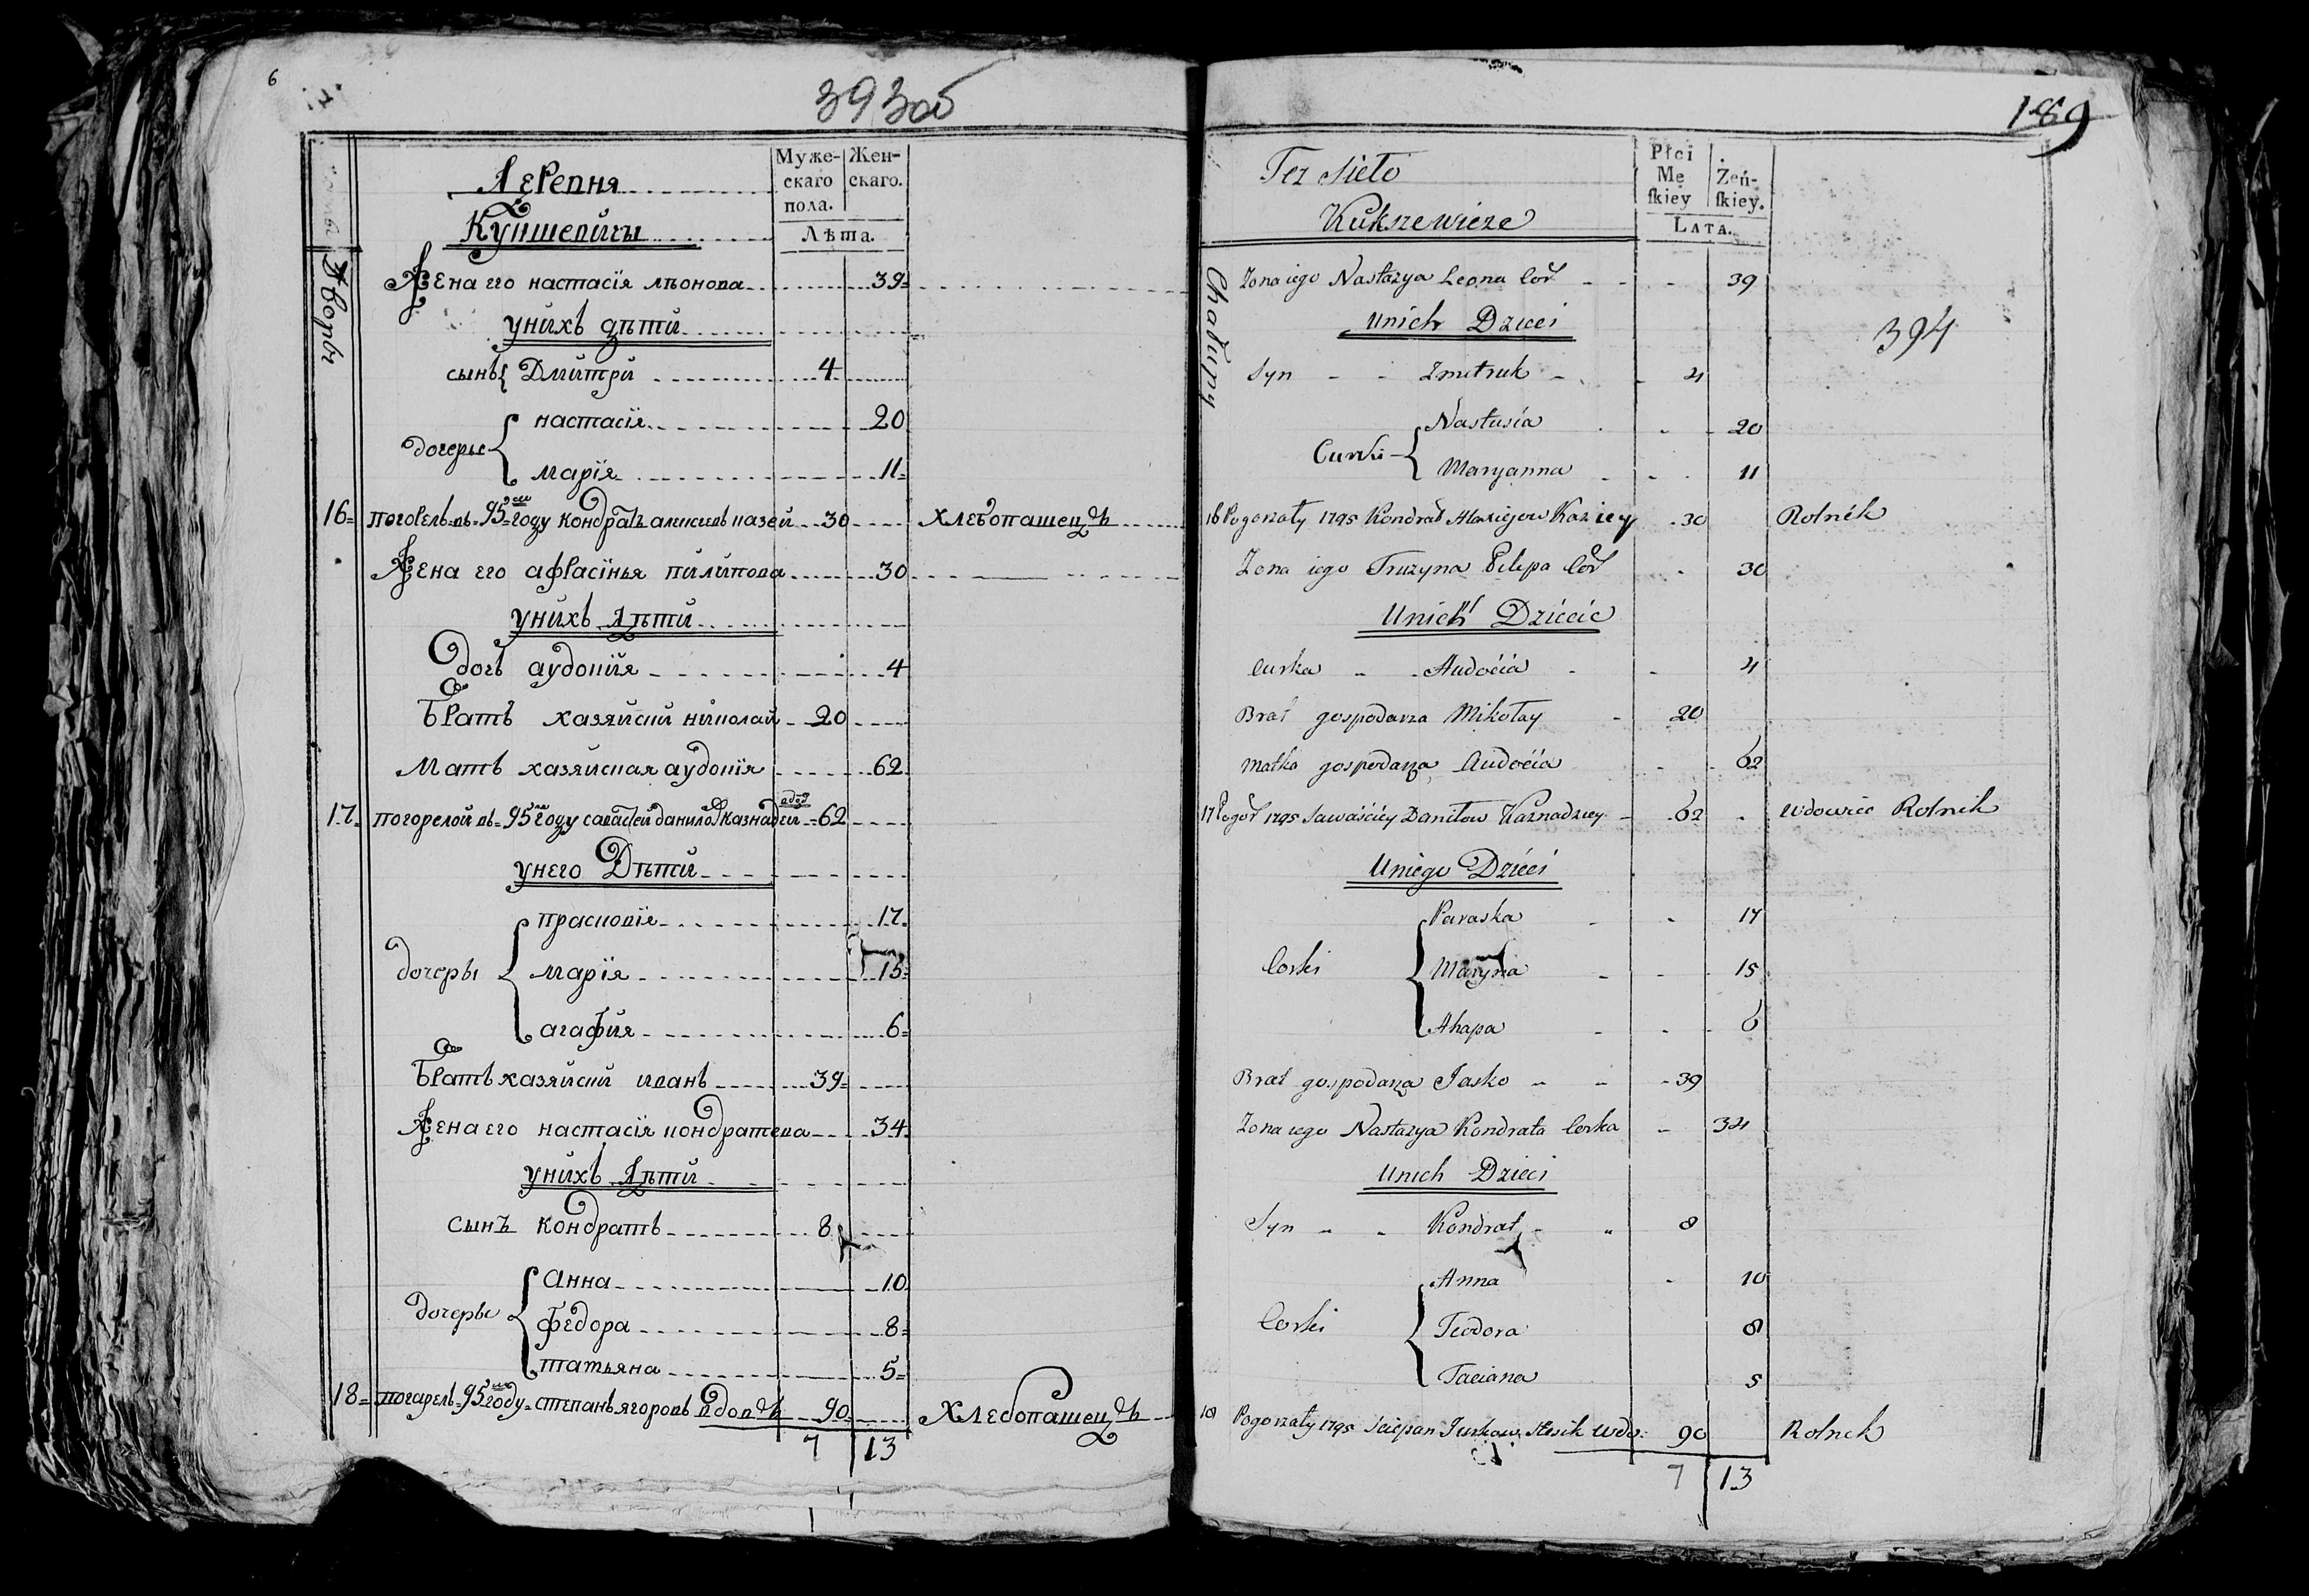 6
393об
Деревня
Кукшевичы
Муже-скаго пола.
Жен-скаго.
Лѣта.
Дворы
Жена его настасія леонова 39
унихъ дѣти
сынъ Дмитри 4
дочеры
настасія 20
марія 11
16 погорелъ въ 95м году Кондратъ алисиевъ казей 30 хлебопашецъ
Жена его афрасінья пилипова 30
унихъ дѣти
дочь аудокия 4
Братъ хазяйский николай 20
Мать хазяйская аудокія 62
17 погорелой въ 95м году савастей данилов Казнадзей вдов 62
унего Дѣти
дочеры
прасковія 17
марія 15
агафия 6
Братъ хазяйский иванъ 39
Жена его настасія кондратева 34
унихъ дѣти
сынъ кондратъ 8
дочеры
Анна 10
федора 8
татьяна 5
18 погарелъ 95м году степанъ ягоровъ вдовъ 90 хлебопашецъ
7 13
189
Tez Sieło
Kukszewicze
Płci Męſkiey
Żeńſkiey.
Lata.
394
Chałupy
Zona iego Nastazya Leona Cor 39
Unich Dzieci
Syn Zmitruk 4
Curki
Nastusia 20
Maryanna 11
16 Pogorzały 1795 Kondrat Alexiejow Kaziey 30 Rolnik
Zona iego Fruzyna Pilipa Cor 30
Unich Dziecie
Curka Audocia 4
Brat gospodarza Mikołay 20
Matka gospodarza Audocia 62
17 Pogor 1795 Sawaściey Daniłow Kaznadziey 62 Wdowiec Rolnik
Uniego Dzieci
Corki
Paraska 17
Maryna 15
Ahapa 6
Brat gospodarza Jasko 39
Zona iego Nastazya Kondrata Corka 34
Unich Dzieci
Syn Kondrat 8
Corki
Anna 10
Teodora 8
Taciana 5
18 Pogorzały 1795 Sciepan Jurkow Wdo: 90 Rolnik
7 13